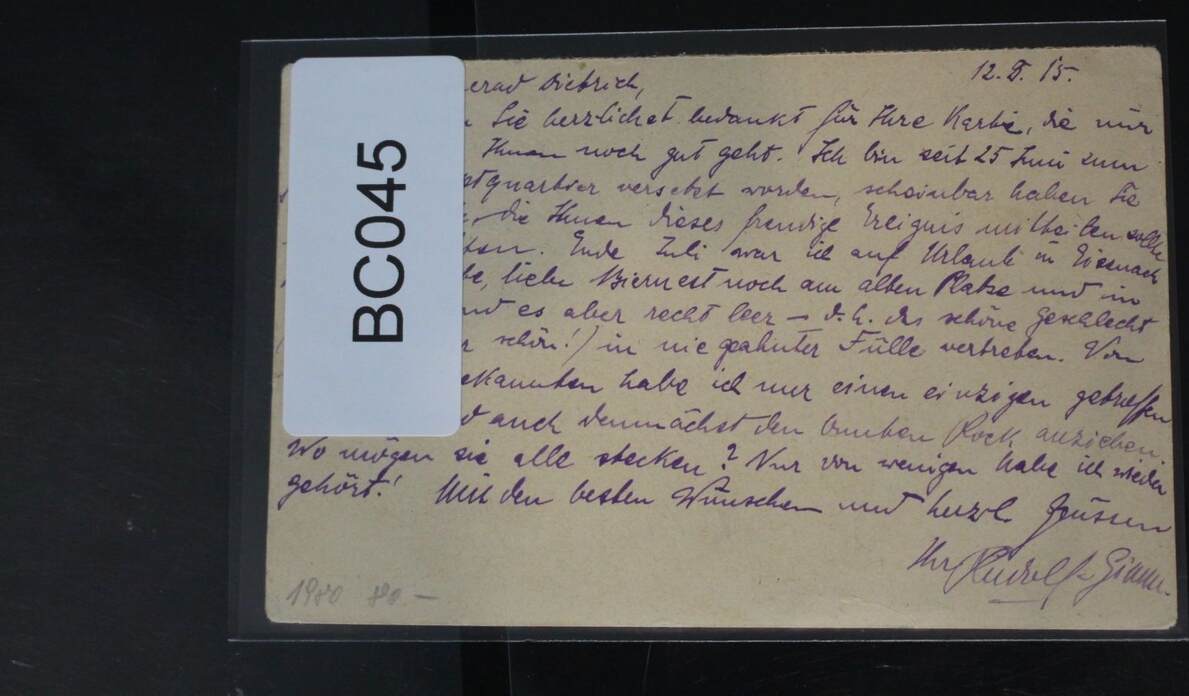 BC045
12. X. 15.
erad Dietrich,
Sie herzlichst bedankt für Ihre Karte, die mir
Ihnen noch gut geht. Ich bin seit 25 Juni zum
tquartier versetzt worden, scheinbar haben Sie
die Ihnen dieses freudige Ereignis mitteilen sollte
Ende Juli war ich auf Urlaub in Eisenach
liebe Biernest noch am alten Platze und in
nd es aber recht leer – d. h. das schöne Geschlecht
schön!) in nie geahnter Fülle vertreten. Von
ekannten habe ich nur einen einzigen getroffen
d auch demnächst den bunten Rock anziehen.
Wo mögen sie alle stecken? Nur von wenigen habe ich wieder
gehört! Mit den besten Wünschen und herzl. Grüssen
Ihr Rudolf
1980 80.–